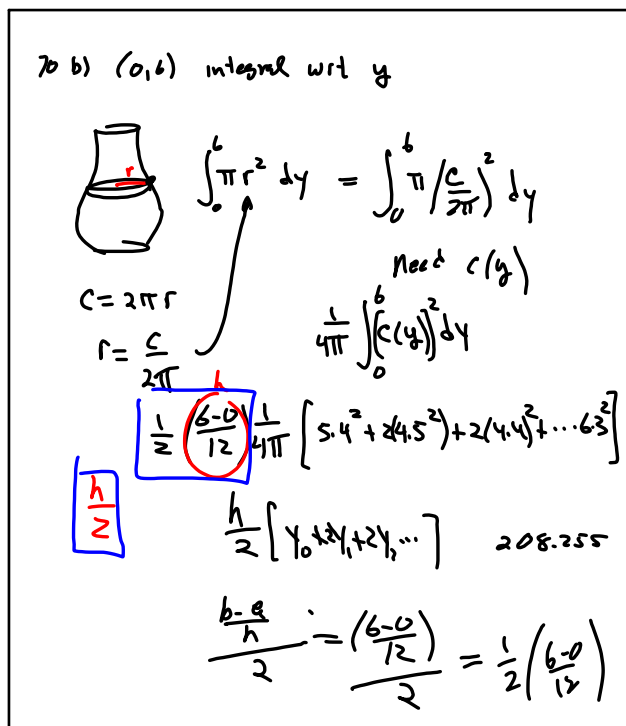 70 b) (0,6) integral wrt y
r
∫₀⁶ πr² dy = ∫₀⁶ π(c/2π)² dy
Need c(y)
C = 2πr
r = c/2π
1/4π ∫₀⁶ (c(y))² dy
h
1/2 (6-0/12) 1/4π [5.4² + 2(4.5²) + 2(4.4)² + ... 6.3²]
h/2
h/2 [y₀ + 2y₁ + 2y₂ ...] 208.255
(b-a/h)/2 = (6-0/12)/2 = 1/2 (6-0/12)